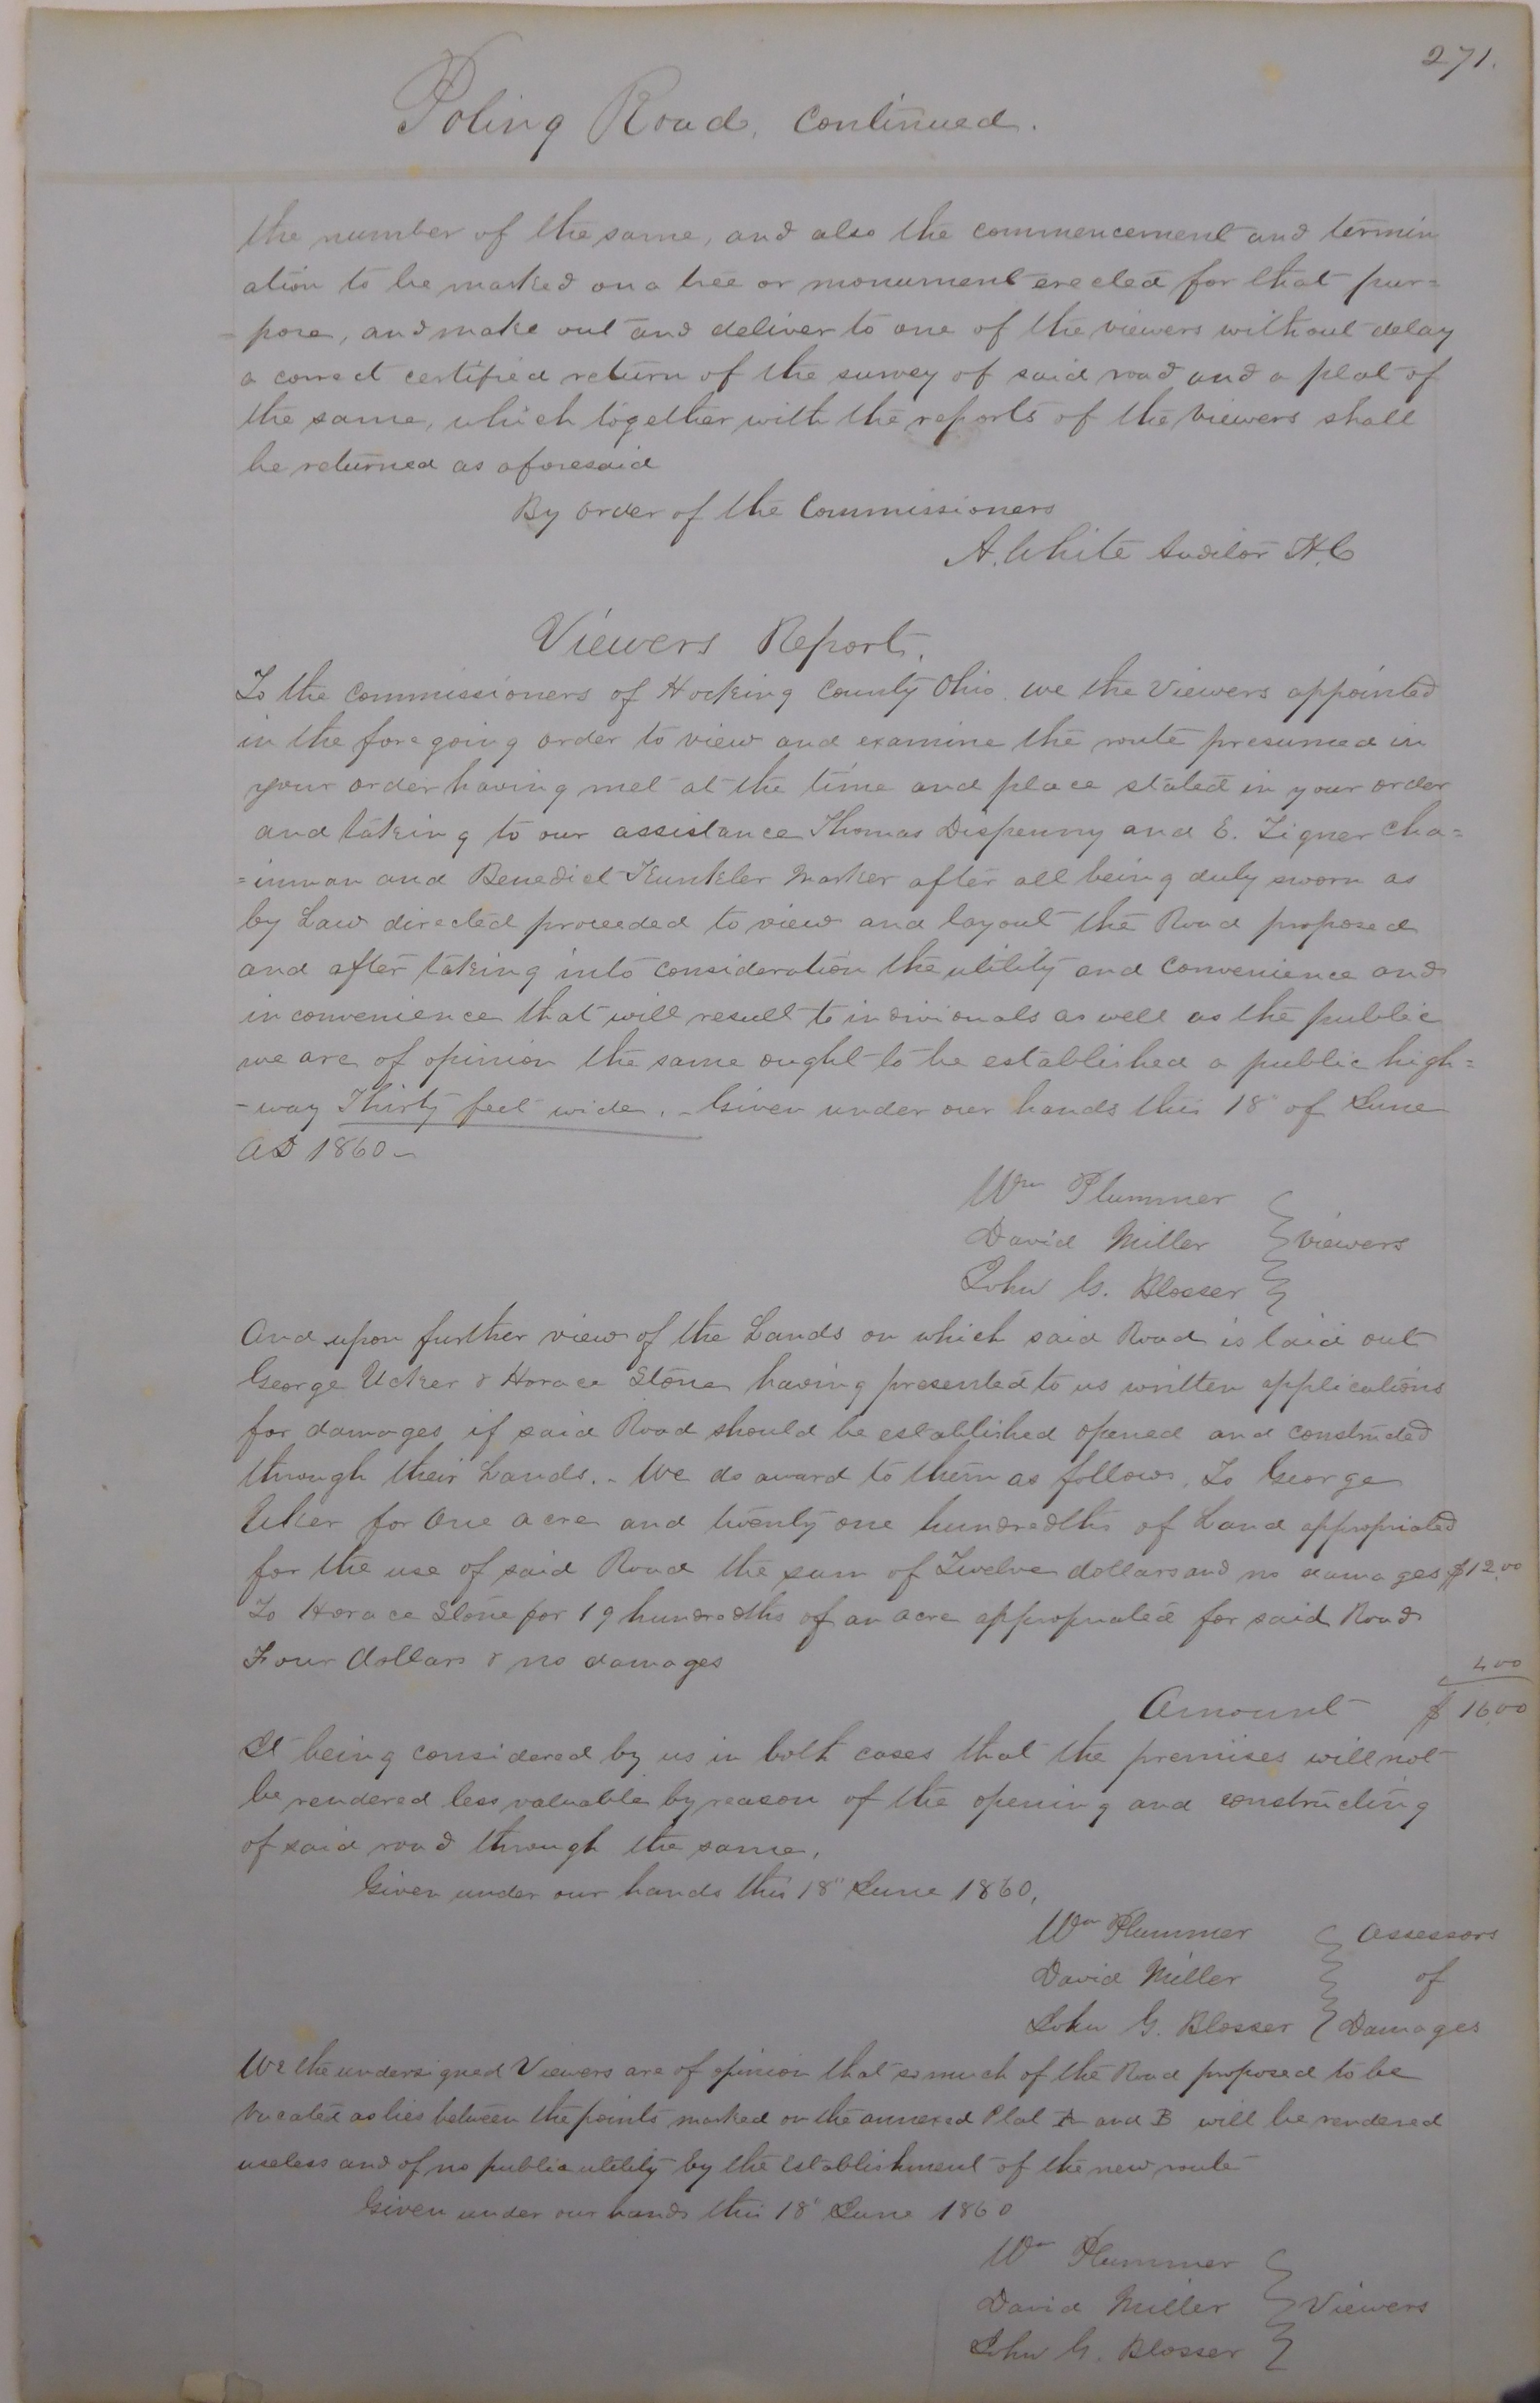 271.
Poling Road, Continued.
the number of the same, and also the commencement and termin
ation to be marked on a tree or monument erected for that pur=
=pose, and make out and deliver to one of the viewers without delay
a correct certified return of the survey of said road and a plat of
the same, which together with the reports of the viewers shall
be returned as aforesaid
By order of the Commissioners
A. White Auditor H.C
Viewers Report.
To the Commissioners of Hocking County Ohio. we the Viewers appointed
in the foregoing order to view and examine the route presumed in
your order having met at the time and place stated in your order
and taking to our assistance Thomas Dispenny and E. Zigner Cha=
=inman and Benedict Kunkler Marker after all being duly sworn as
by Law directed proceeded to view and layout the Road proposed
and after taking into consideration the utility and convenience and
inconvenience that will result to individuals as well as the public
we are of opinion the same ought to be established a public high=
-way Thirty feet wide. - Given under our hands this 18" of June
AD 1860 -
Wm Plummer
David Miller } Viewers
John G. Blosser
And upon further view of the Lands on which said Road is laid out
George Ucker & Horace Stone having presented to us written applications
for damages if said Road should be established opened and constructed
through their Lands. - We do award to them as follows. To George
Uker for One acre and twenty one hundredths of Land appropriated
for the use of said Road the sum of Twelve dollars and no damages $12.00
To Horace Stone for 19 hundredths of an acre appropriated for said Road
Four dollars & no damages 4 00
Amount $ 16.00
It being considered by us in both cases that the premises will not
be rendered less valuable by reason of the opening and constructing
of said road through the same,
Given under our hands this 18" June 1860,
Wm Plummer } Assessors
David Miller } of
John G. Blosser } Damages
We the undersigned Viewers are of opinion that so much of the Road proposed to be
vacated as lies between the points marked on the annexed Plat A and B will be rendered
useless and of no public utility by the establishment of the new route
Given under our hands this 18" June 1860
Wm Plummer
David Miller } Viewers
John G. Blosser